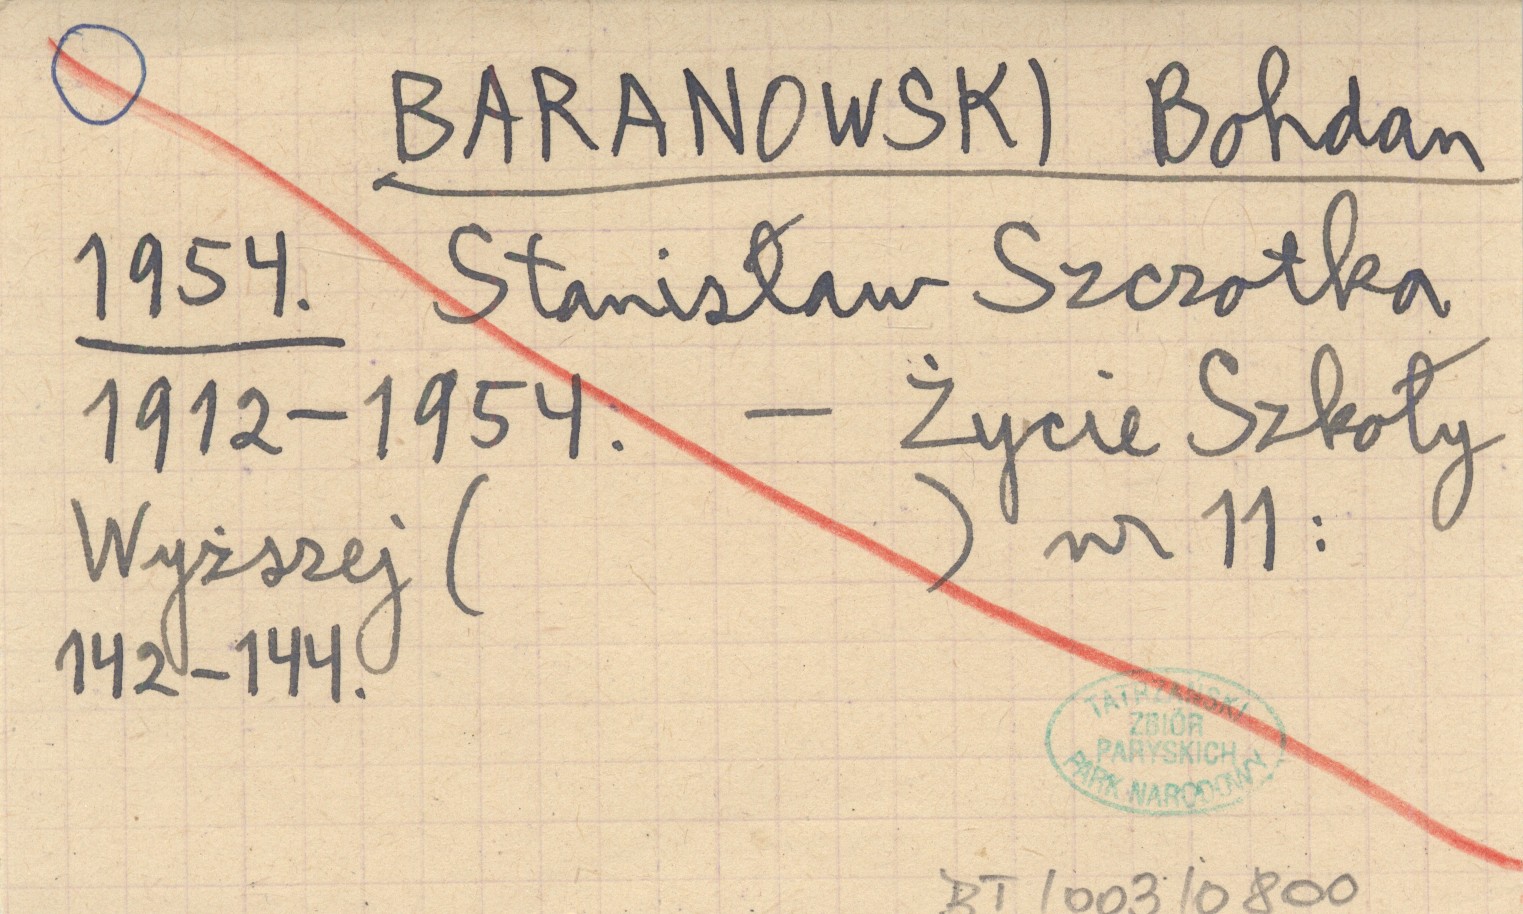 BARANOWSKI Bohdan
1954. Stanisław Szczotka
1912-1954. — Życie Szkoły
Wyższej ( ) nr 11:
142-144.
TATRZAŃSKI
ZBIÓR
PARYSKICH
PARK NARODOWY
BT/003/0800